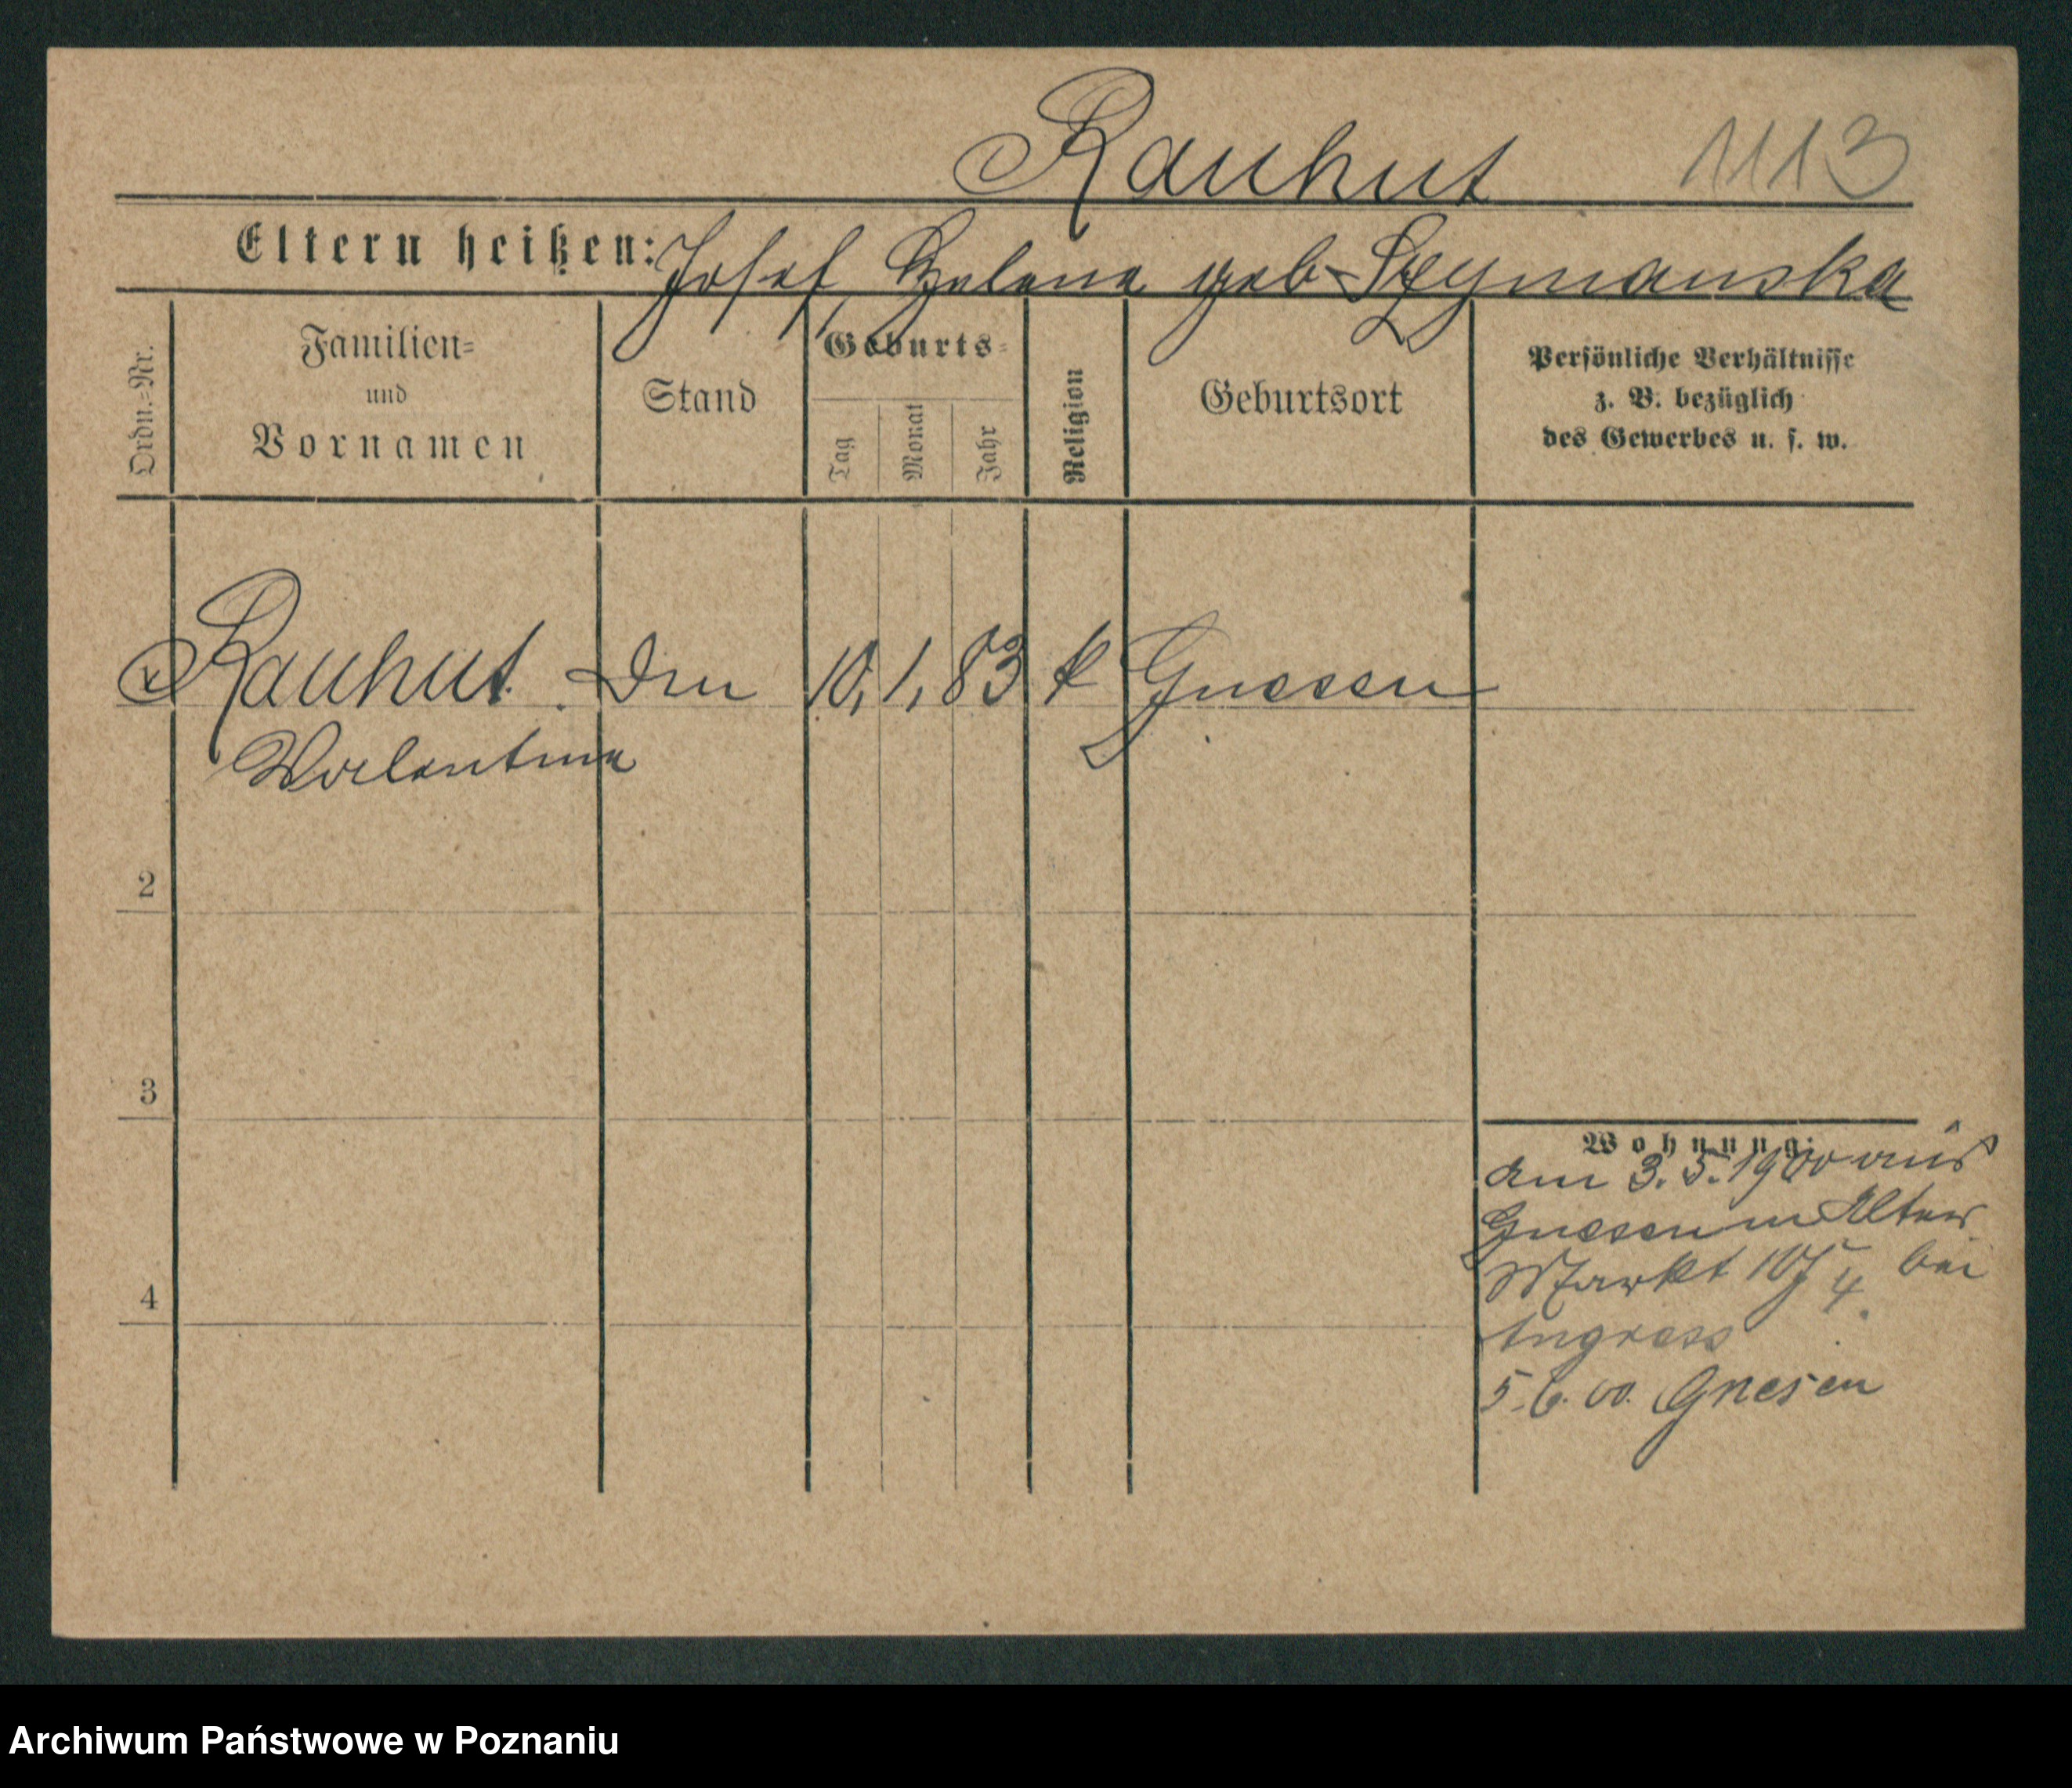 Rauhut 1113
Eltern heißen: Josef, Helene geb Szymanska
Ordn.-Nr.
Familien-
und
Vornamen
Stand
Geburts-
Tag
Monat
Jahr
Religion
Geburtsort
Persönliche Verhältnisse
z. B. bezüglich
des Gewerbes u. s. w.
Rauhut. 10. 1. 83 k Gnesen
Valentina
2
3
4
Wohnung:
am 3. 5. 1900 aus
Gnesen n Alter
Markt 4 bei
5. 6. 00. Gnesen
Archiwum Państwowe w Poznaniu